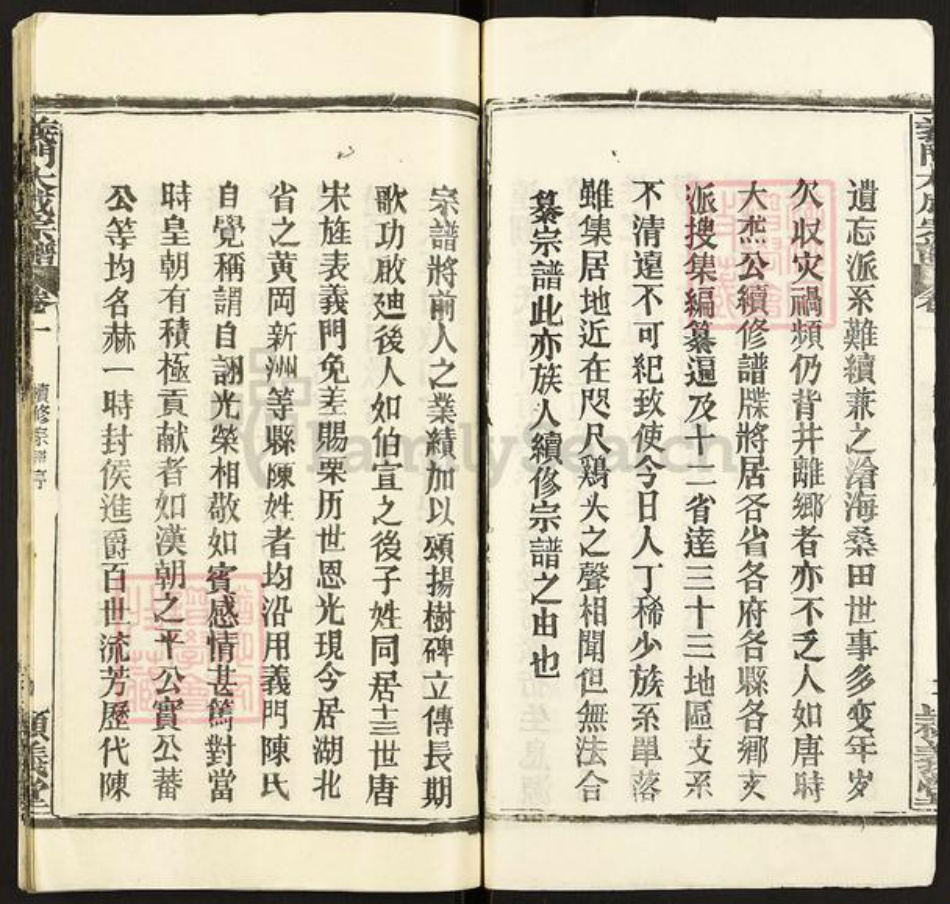 遺忘派系難續兼之滄海桑田世事多变年岁
欠収灾禍頻仍背井離鄉者亦不乏人如唐時
大杰公續修譜牒將居各省各府各縣各鄉支
派搜集編纂遍及十二省達三十三地區支系
不清遠不可紀致使今日人丁稀少族系單落
雖集居地近在咫尺鷄犬之聲相聞但無法合
纂宗譜此亦族人續修宗譜之由也
宗譜將前人之業績加以頌揚樹碑立傳長期
歌功啟廸後人如伯宣之後子姓同居十三世唐
宋旌表義門免差賜栗历世恩光現今居湖北
省之黄岡新洲等縣陳姓者均沿用義門陳氏
自覺稱謂自詡光榮相敬如賓感情甚篤對當
時皇朝有積極貢献者如漢朝之平公實公蕃
公等均名赫一時封侯進爵百世流芳歷代陳
義門大成宗譜
卷一
續修宗譜序
類義堂
FamilySearch